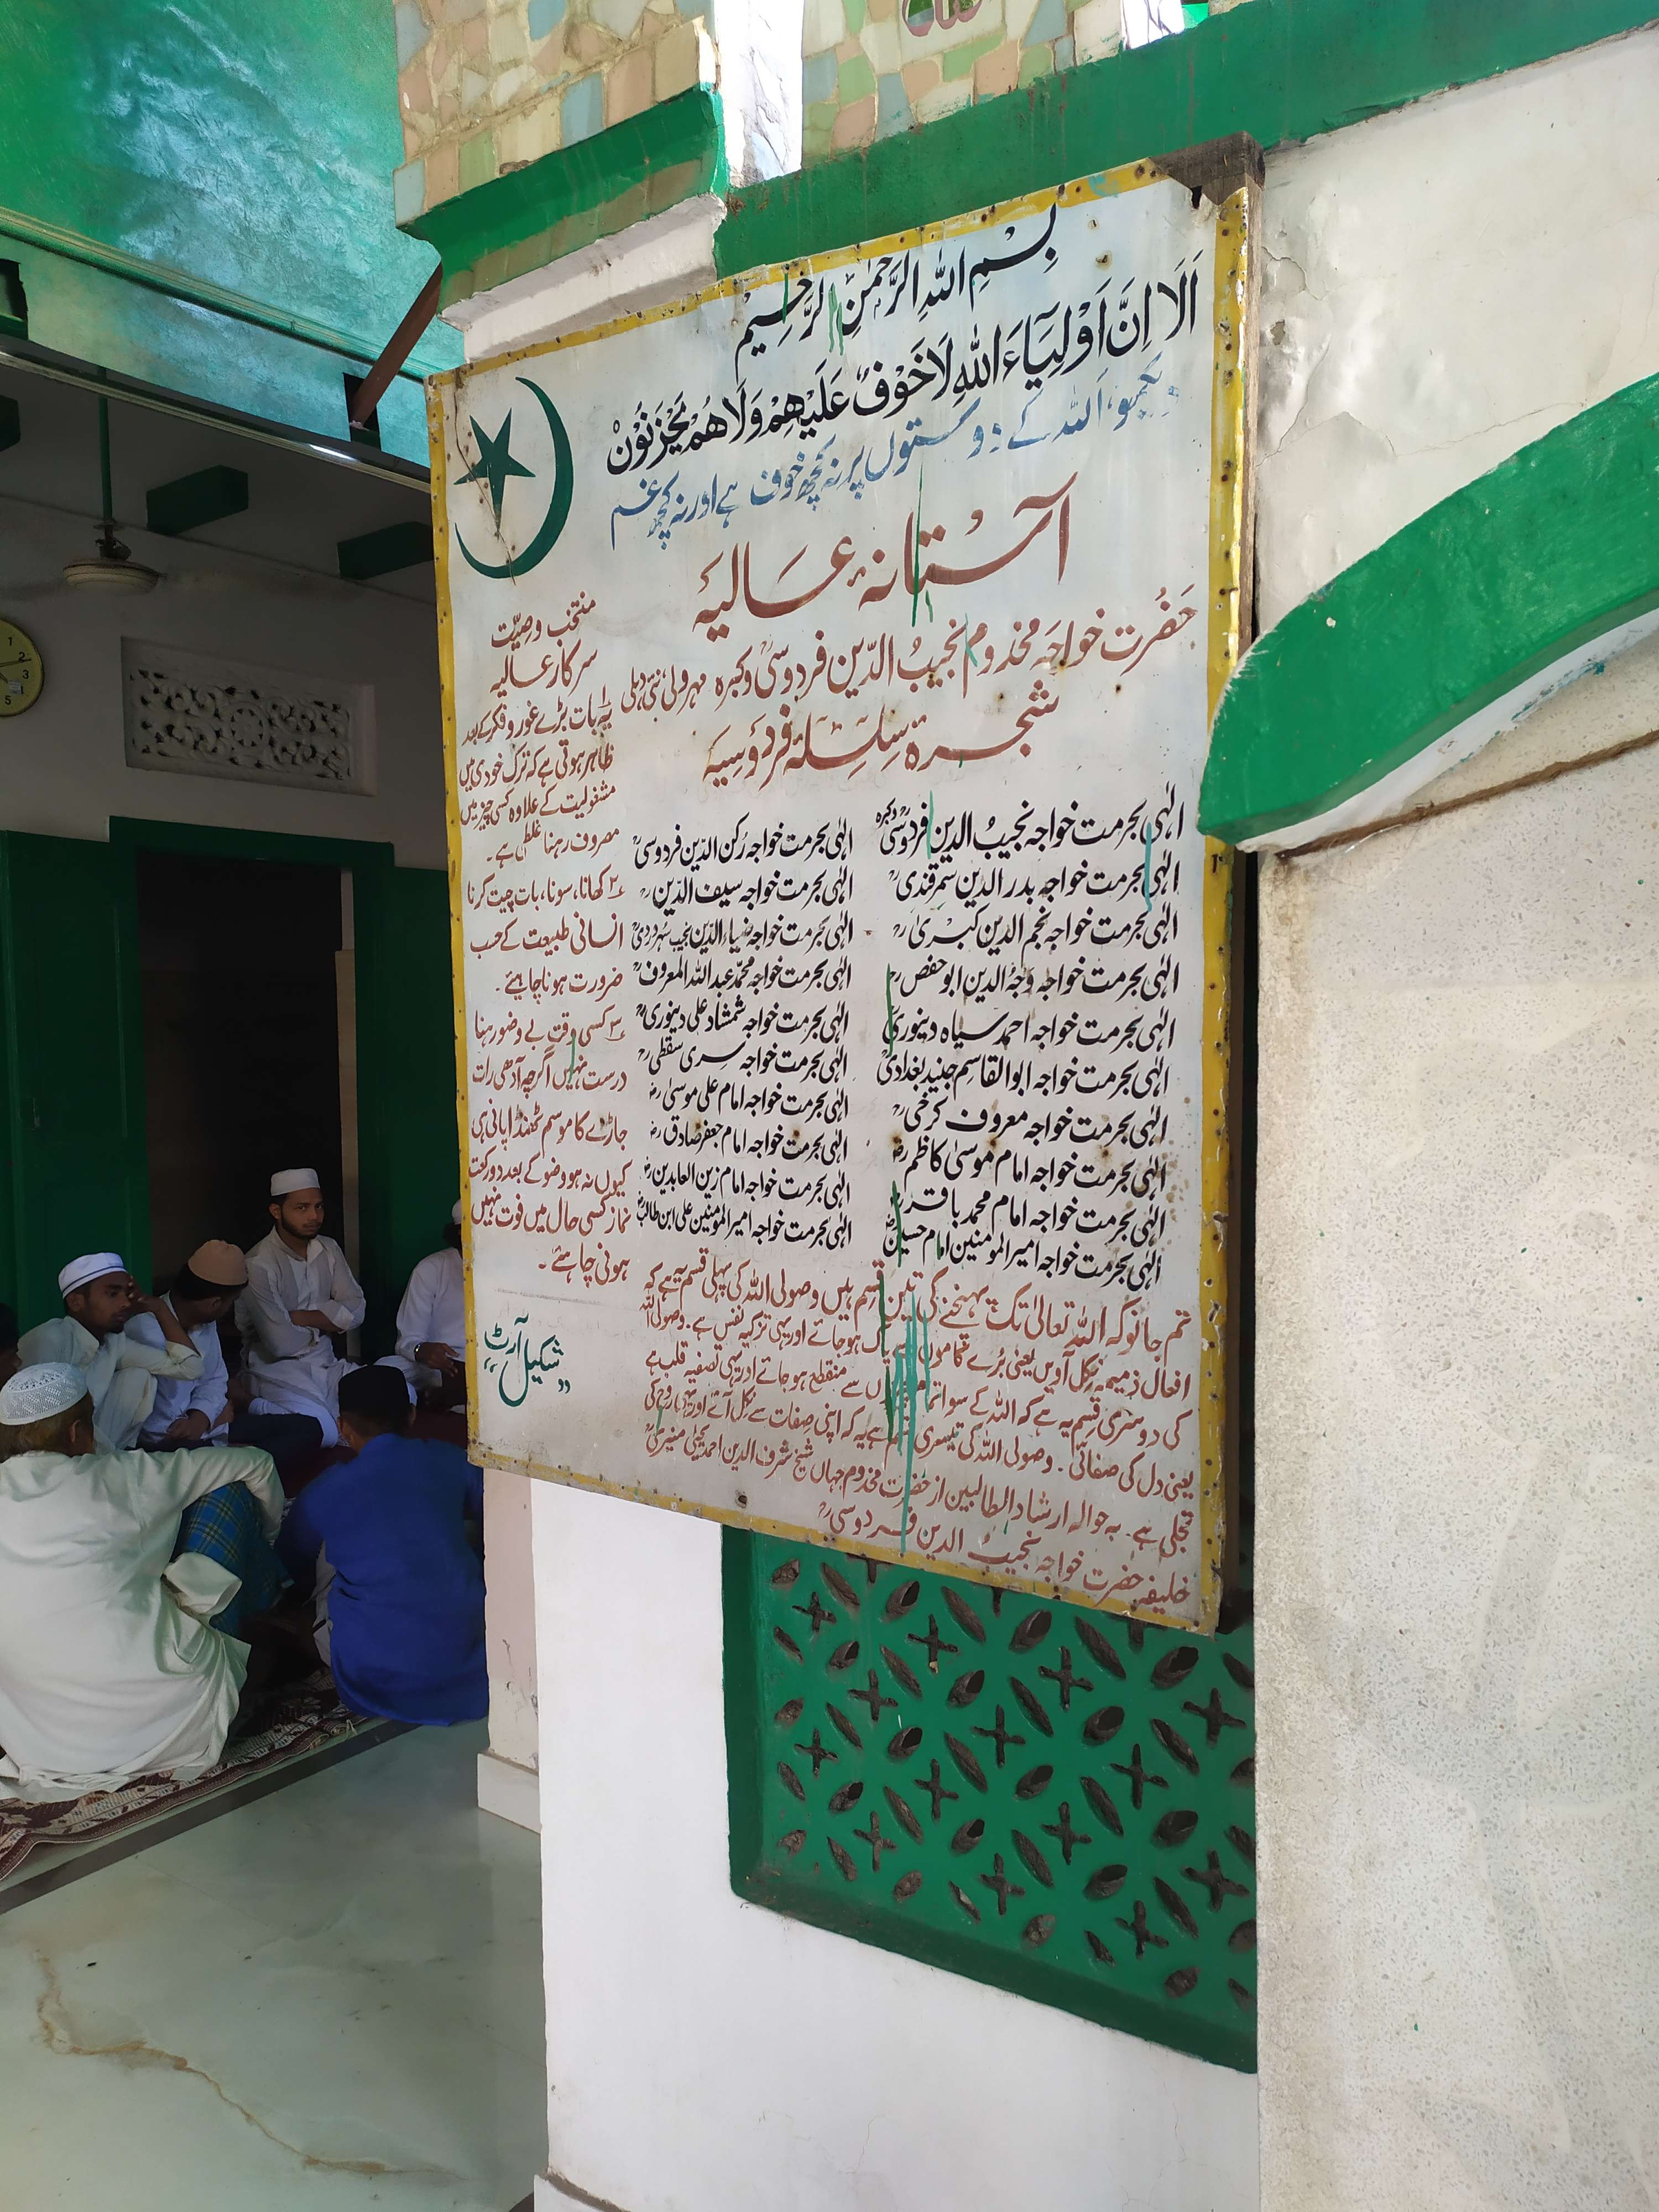 بِسْمِ اللهِ الرَّحْمٰنِ الرَّحِیْمِ
اَلَا اِنَّ اَوْلِیَآءَ اللهِ لَا خَوْفٌ عَلَیْهِمْ وَلَا هُمْ یَحْزَنُوْنَ
دیکھو، اللہ کے دوستوں پر نہ کچھ خوف ہے اور نہ کچھ غم
آستانۂ عالیہ
حضرت خواجہ مخدوم نجیبُ الدّین فردوسیؒ وکبرہ مہرولی، نئی دہلی
شجرہ سِلسِلۂ فردوسیہ
الٰہی بحرمت خواجہ نجیبُ الدین فردوسیؒ وکبرہ
الٰہی بحرمت خواجہ رُکن الدّین فردوسیؒ
الٰہی بحرمت خواجہ بدر الدین سمرقندیؒ
الٰہی بحرمت خواجہ سیف الدّینؒ
الٰہی بحرمت خواجہ نجم الدین کبریٰؒ
الٰہی بحرمت خواجہ ضیاء الدّین نجیب سُہروردیؒ
الٰہی بحرمت خواجہ وجہُ الدین ابو حفصؒ
الٰہی بحرمت خواجہ محمّد عبد اللہ المعروفؒ
الٰہی بحرمت خواجہ احمد سیاہ دینوریؒ
الٰہی بحرمت خواجہ شمشاد علی دینوریؒ
الٰہی بحرمت خواجہ ابوالقاسم جنید بغدادیؒ
الٰہی بحرمت خواجہ سری سقطیؒ
الٰہی بحرمت خواجہ معروف کرخیؒ
الٰہی بحرمت خواجہ امام علی موسیٰؓ
الٰہی بحرمت خواجہ امام موسیٰ کاظمؓ
الٰہی بحرمت خواجہ امام جعفر صادقؓ
الٰہی بحرمت خواجہ امام محمد باقرؓ
الٰہی بحرمت خواجہ امام زین العابدینؓ
الٰہی بحرمت خواجہ امیر المومنین امام حسینؓ
الٰہی بحرمت خواجہ امیر المومنین علی ابن طالبؓ
تم جانو کہ اللہ تعالیٰ تک پہنچنے کی تین قسم ہیں وصولی اللہ کی پہلی قسم یہ ہے کہ
افعال ذمیمہ نکل آویں یعنی بُرے کاموں سے پاک ہو جائے اور یہی تزکیہ نفس ہے۔ وصولی اللہ
کی دوسری قسم یہ ہے کہ اللہ کے سوا تمام سے منقطع ہو جائے اور یہی تصفیہ قلب ہے
یعنی دل کی صفائی۔ وصولی اللہ کی تیسری قسم ہے یہ کہ اپنی صفات سے نکل آئے اور یہی روح کی
تجلی ہے۔ بہ حوالہ ارشاد الطالبین از حضرت مخدوم جہاں شیخ شرف الدین احمد یحییٰ منیریؒ
خلیفہ حضرت خواجہ نجیبُ الدین فردوسیؒ
منتخب وصیّت
سرکار عالیہ
۱؎ یہ بات بڑے غور و فکر کے بعد
ظاہر ہوتی ہے کہ ترک خودی میں
مشغولیت کے علاوہ کسی چیز میں
مصروف رہنا غلط ہے۔
۲؎ کھانا، سونا، بات چیت کرنا
انسانی طبیعت کے حسب
ضرورت ہونا چاہیئے۔
۳؎ کسی وقت بے وضو رہنا
درست نہیں اگرچہ آدھی رات
جاڑے کا موسم ٹھنڈا پانی ہی
کیوں نہ ہو وضو کے بعد دو رکعت
نماز کسی حال میں فوت نہیں
ہونی چاہئے۔
"شکیل آرٹ"
1
2
3
5